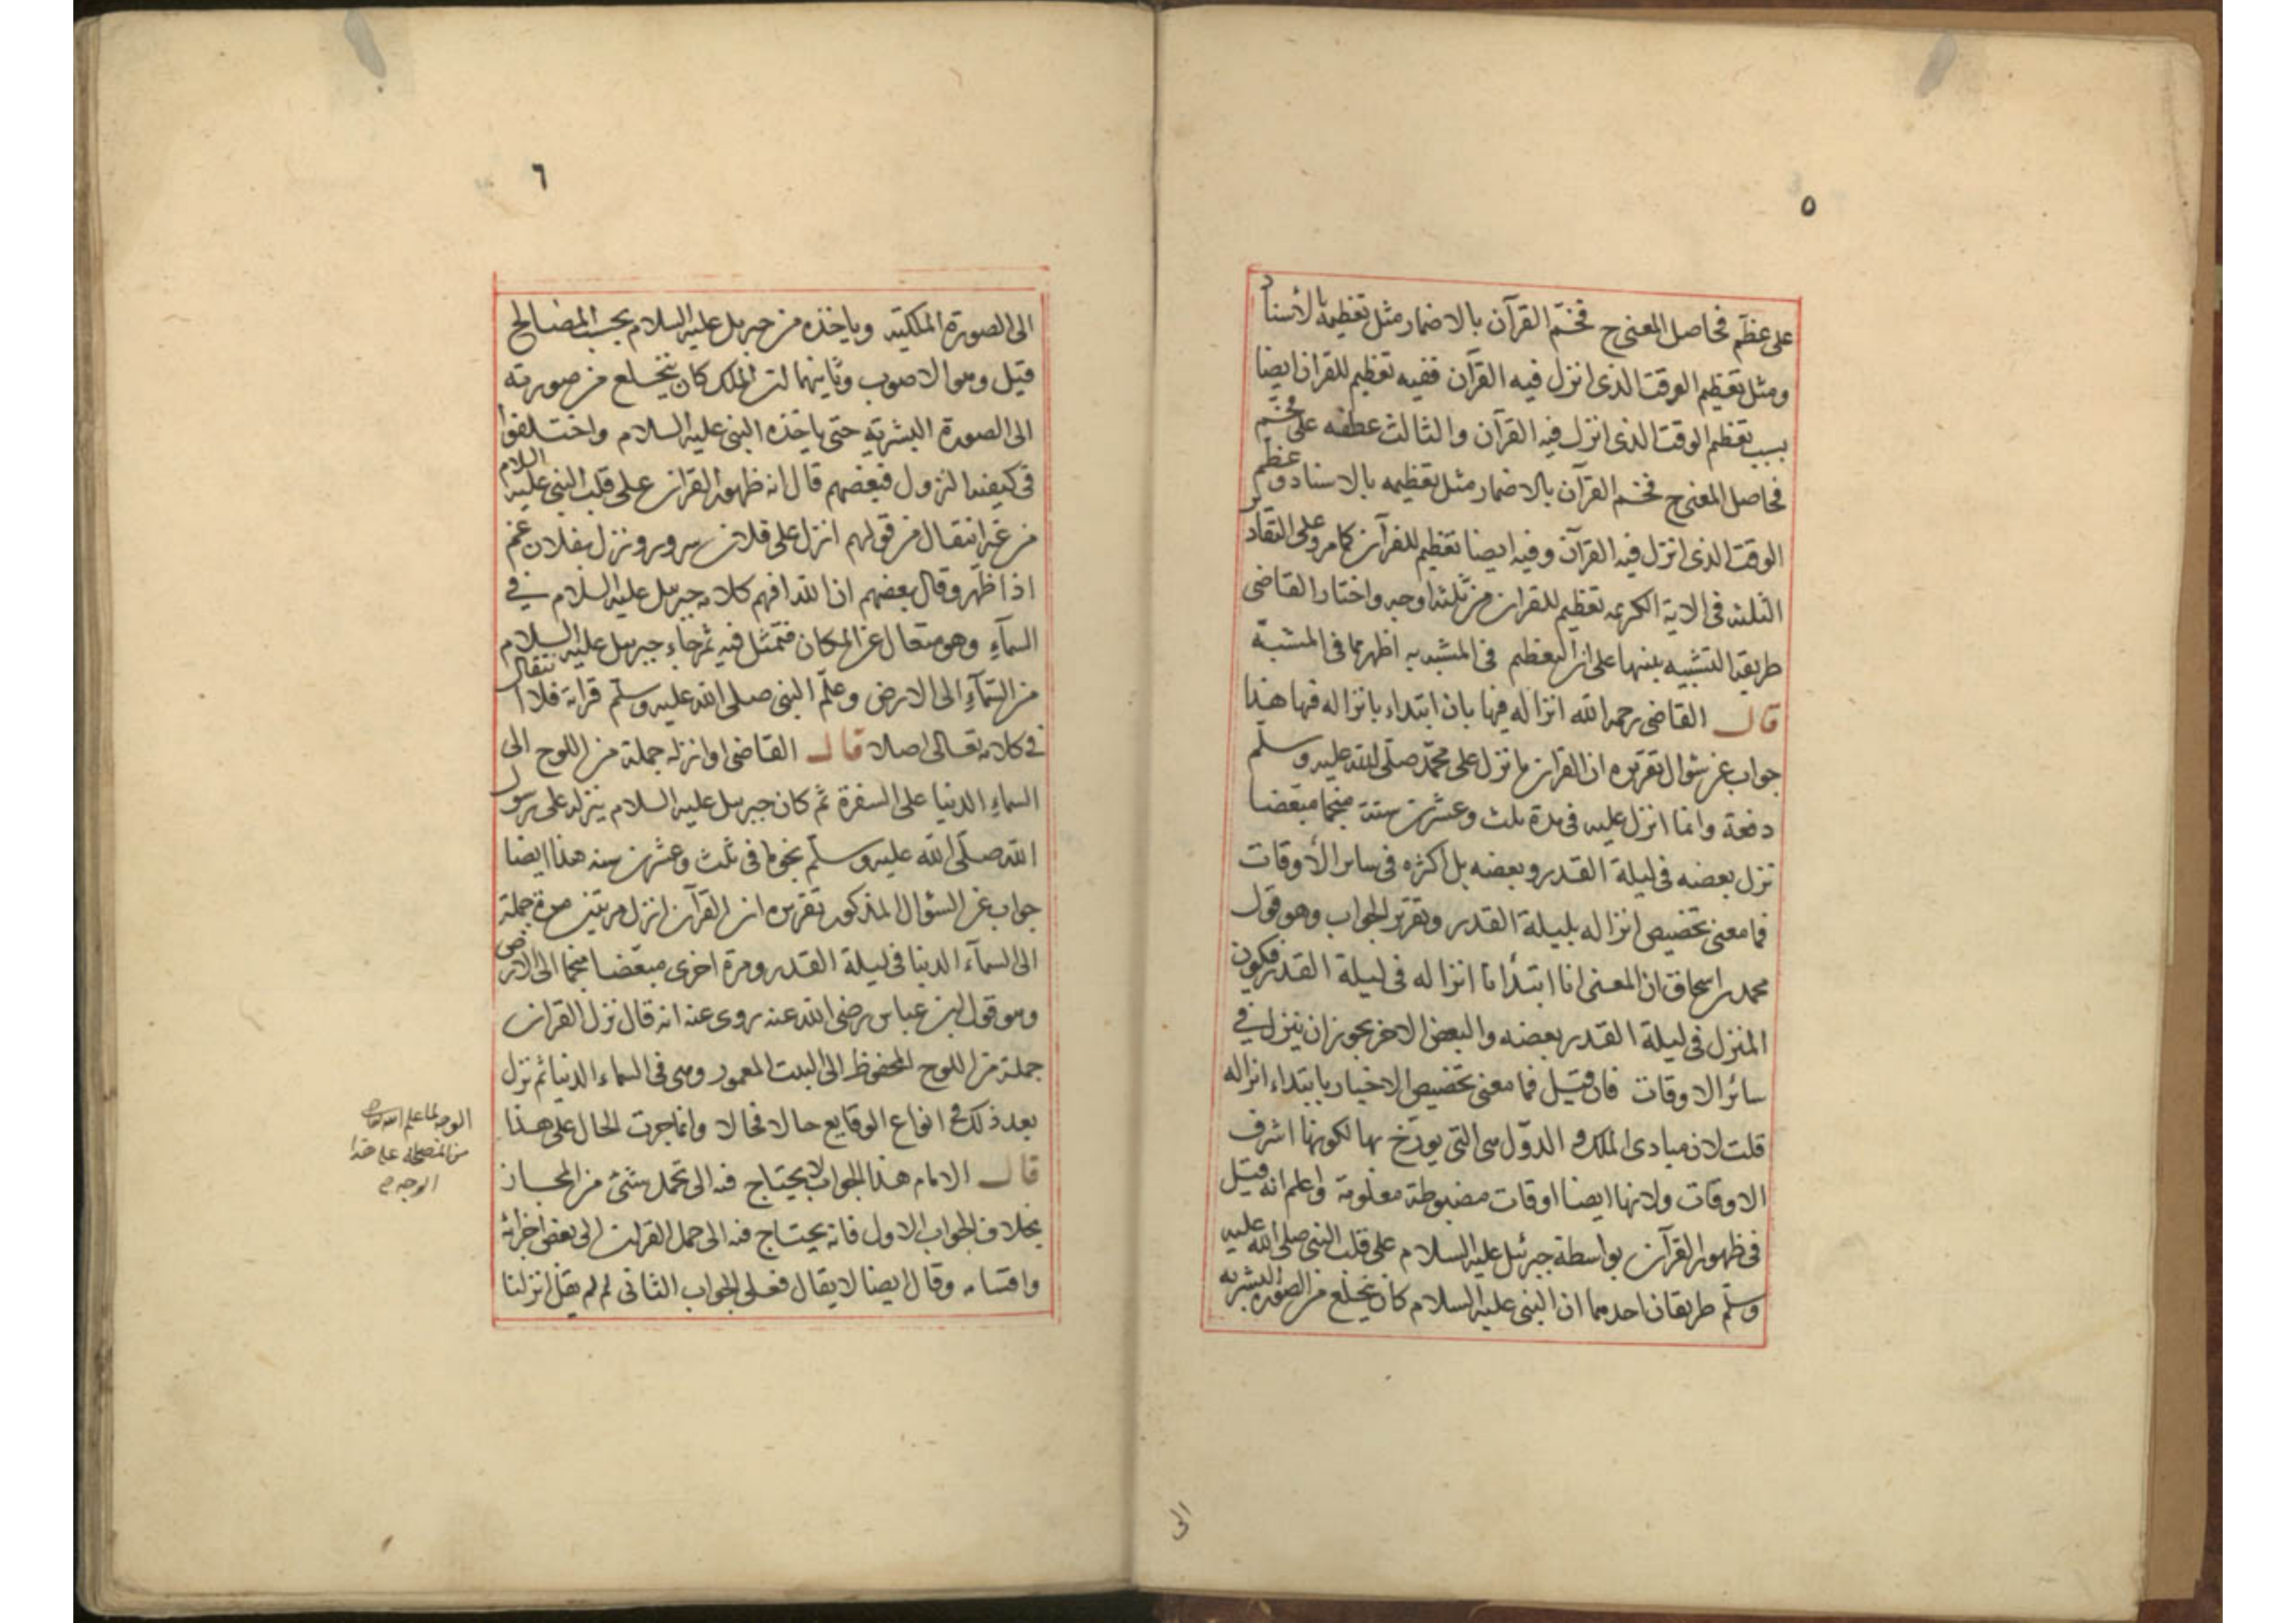 ٥
على عظم فحاصل المعنى ح فخم القرآن بالاضمار مثل تعظيمه بالأسناد
ومثل تعظيم الوقت الذى انزل فيه القرآن ففيه تعظيم للقران ايضا
بسبب تعظيم الوقت الذى انزل فيه القرآن والثالث عطفه على فخم
فحاصل المعنى ح فخم القرآن بالاضمار مثل تعظيمه بالاسناد وعظم
الوقت الذى انزل فيه القرآن وفيه ايضا تعظيم للقرآن كما مر وعلى التقادير
الثلثة فى الاية الكريمه تعظيم للقران من ثلثة اوجه واختار القاضى
طريقة التشبيه بينها على ان التعظيم فى المشبه به اظهر مما فى المشبة
قال القاضى رحمه الله انزاله فيها بان ابتداء بانزاله فيها هذا
جواب عن سؤال تقريره ان القران ما نزل على محمد صلى الله عليه وسلم
دفعة وانما انزل عليه فى مدة ثلث وعشرين سنة منجما مبعضا
نزل بعضه فى ليلة القدر وبعضه بل اكثره فى ساير الأوقات
فما معنى تخصيص انزاله بليلة القدر وتقرير الجواب وهو قول
محمد بن اسحاق ان المعنى انا ابتدأنا انزاله فى ليلة القدر فيكون
المنزل فى ليلة القدر بعضه والبعض الاخر يجوز ان ينزل في
سائر الاوقات فان قيل فما معنى تخصيص الاخبار بابتداء انزاله
قلت لان مبادى الملك و الدول هى التى يورخ بها لكونها اشرف
الاوقات ولانها ايضا اوقات مضبوطة معلومة واعلم انه قيل
فى ظهور القرآن بواسطة جبرئيل عليه السلام على قلب النبى صلى الله عليه
وسلم طريقان احدهما ان النبى عليه السلام كان يتخلع من الصورة البشريه
الى
٦
الى الصورة الملكية وياخذه من جبريل عليه السلام بحسب المصالح
قيل وهو الاصوب وثانيهما ان الملك كان يتخلع من صورته
الى الصورة البشرية حتى ياخذه النبى عليه السلام واختلفوا
فى كيفية النزول فبعضهم قال انه ظهور القران على قلب النبى عليه السلام
من غير انتقال من قولهم انزل على فلان سرور ونزل بفلان غم
اذا ظهر وقال بعضهم ان الله افهم كلامه جبريل عليه السلام في
السمآء وهو متعال عن المكان فتمثل فيه ثم جاء جبريل عليه السلام
من السمآء الى الارض وعلم النبى صلى الله عليه وسلم قراته فلا انتقال
فى كلامه تعالى اصلا قال القاضى او انزله جملة من اللوح الى
السماء الدنيا على السفرة ثم كان جبريل عليه السلام ينزله على رسول
الله صلى الله عليه وسلم نجوما فى ثلث وعشرين سنه هذا ايضا
جواب عن السؤال المذكور تقريره ان القرآن انزل مرتين مرة جملة
الى السمآء الدنيا فى ليلة القدر ومرة اخرى مبعضا منجما الى الارض
وهو قول ابن عباس رضى الله عنه روى عنه انه قال نزل القران
جملة من اللوح المحفوظ الى البيت المعمور وهى فى السماء الدنيا ثم نزل
بعد ذلك فى انواع الوقايع حالا فحالا وانما جرت الحال على هذا
قال الامام هذا الجواب لا يحتاج فيه الى تحمل شئ من المجاز
بخلاف الجواب الاول فانه يحتاج فيه الى حمل القران الى بعض اجزائه
واقسامه وقال ايضا لا يقال فعلى الجواب الثانى لم لم يقل انزلنا
الوجه لما علم الله تعالى
من المصلحة على هذا
الوجه